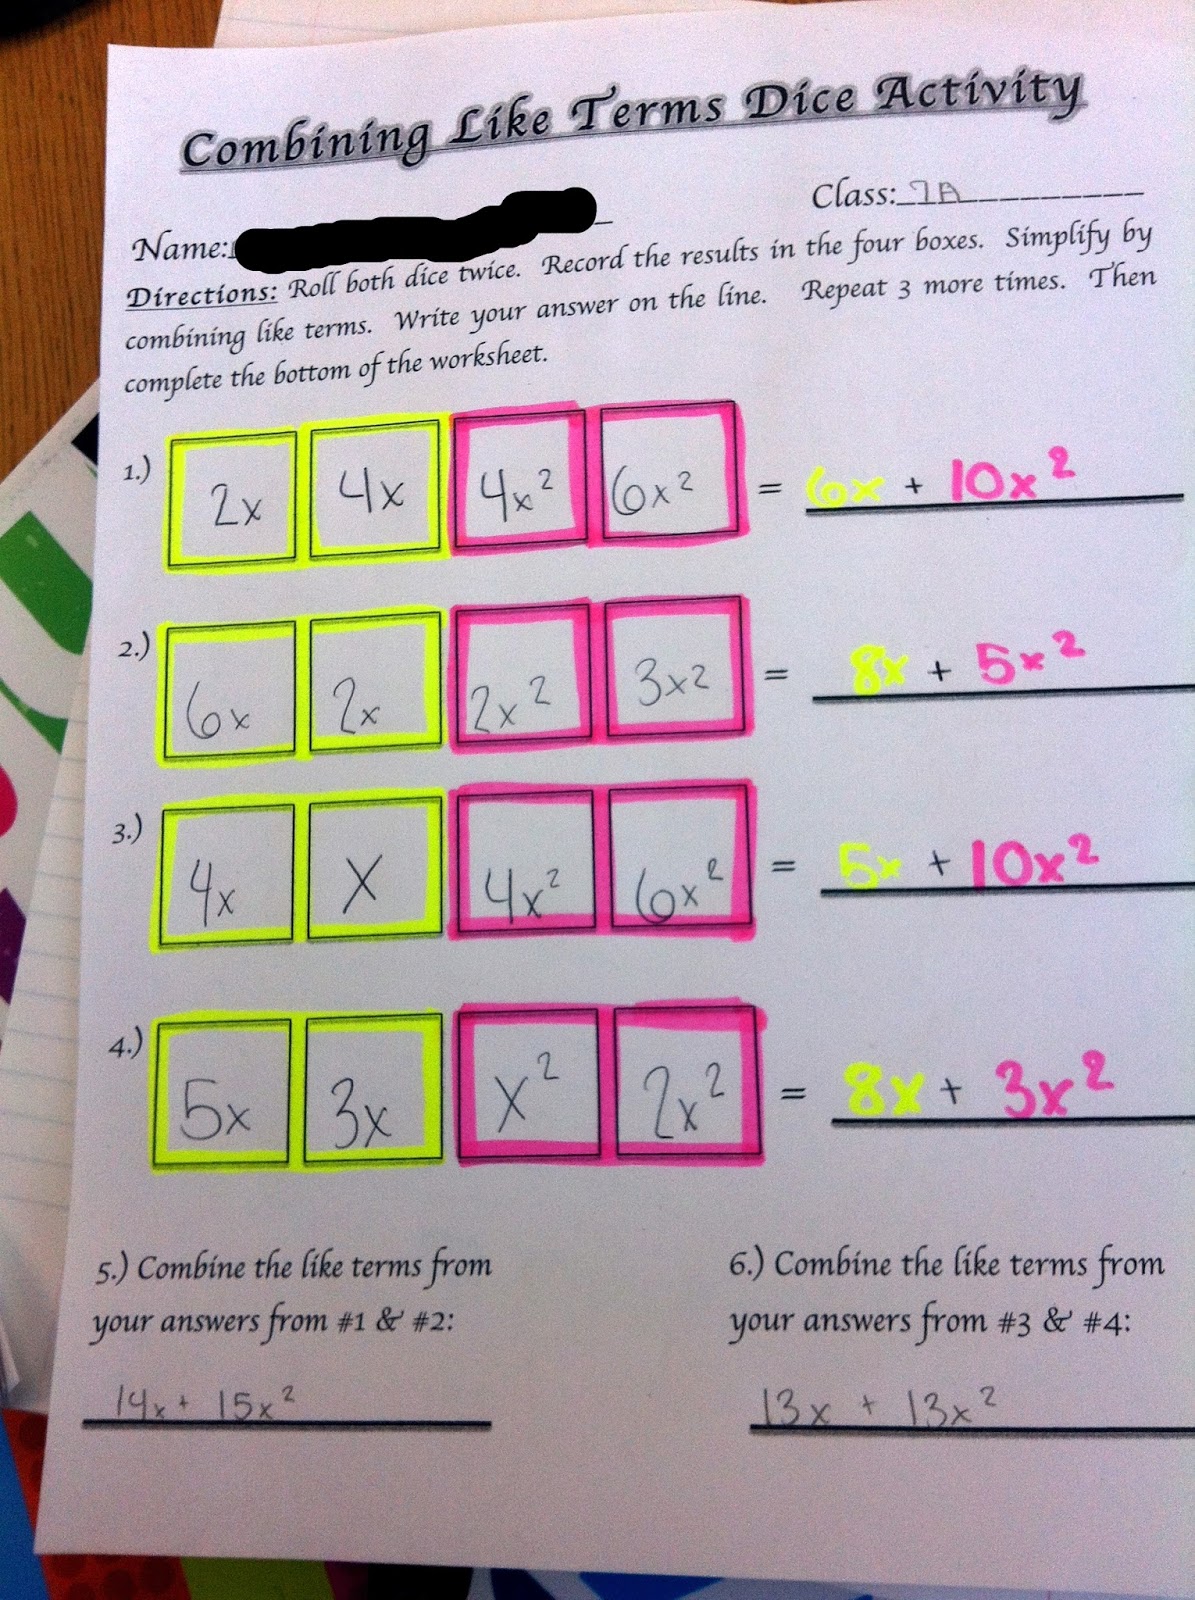 Combining Like Terms Dice Activity
Class: 7A
Name:
Directions: Roll both dice twice. Record the results in the four boxes. Simplify by
combining like terms. Write your answer on the line. Repeat 3 more times. Then
complete the bottom of the worksheet.
1.) 2x 4x 4x² 6x² = 6x + 10x²
2.) 6x 2x 2x² 3x² = 8x + 5x²
3.) 4x x 4x² 6x² = 5x + 10x²
4.) 5x 3x x² 2x² = 8x + 3x²
5.) Combine the like terms from
your answers from #1 & #2:
14x + 15x²
6.) Combine the like terms from
your answers from #3 & #4:
13x + 13x²